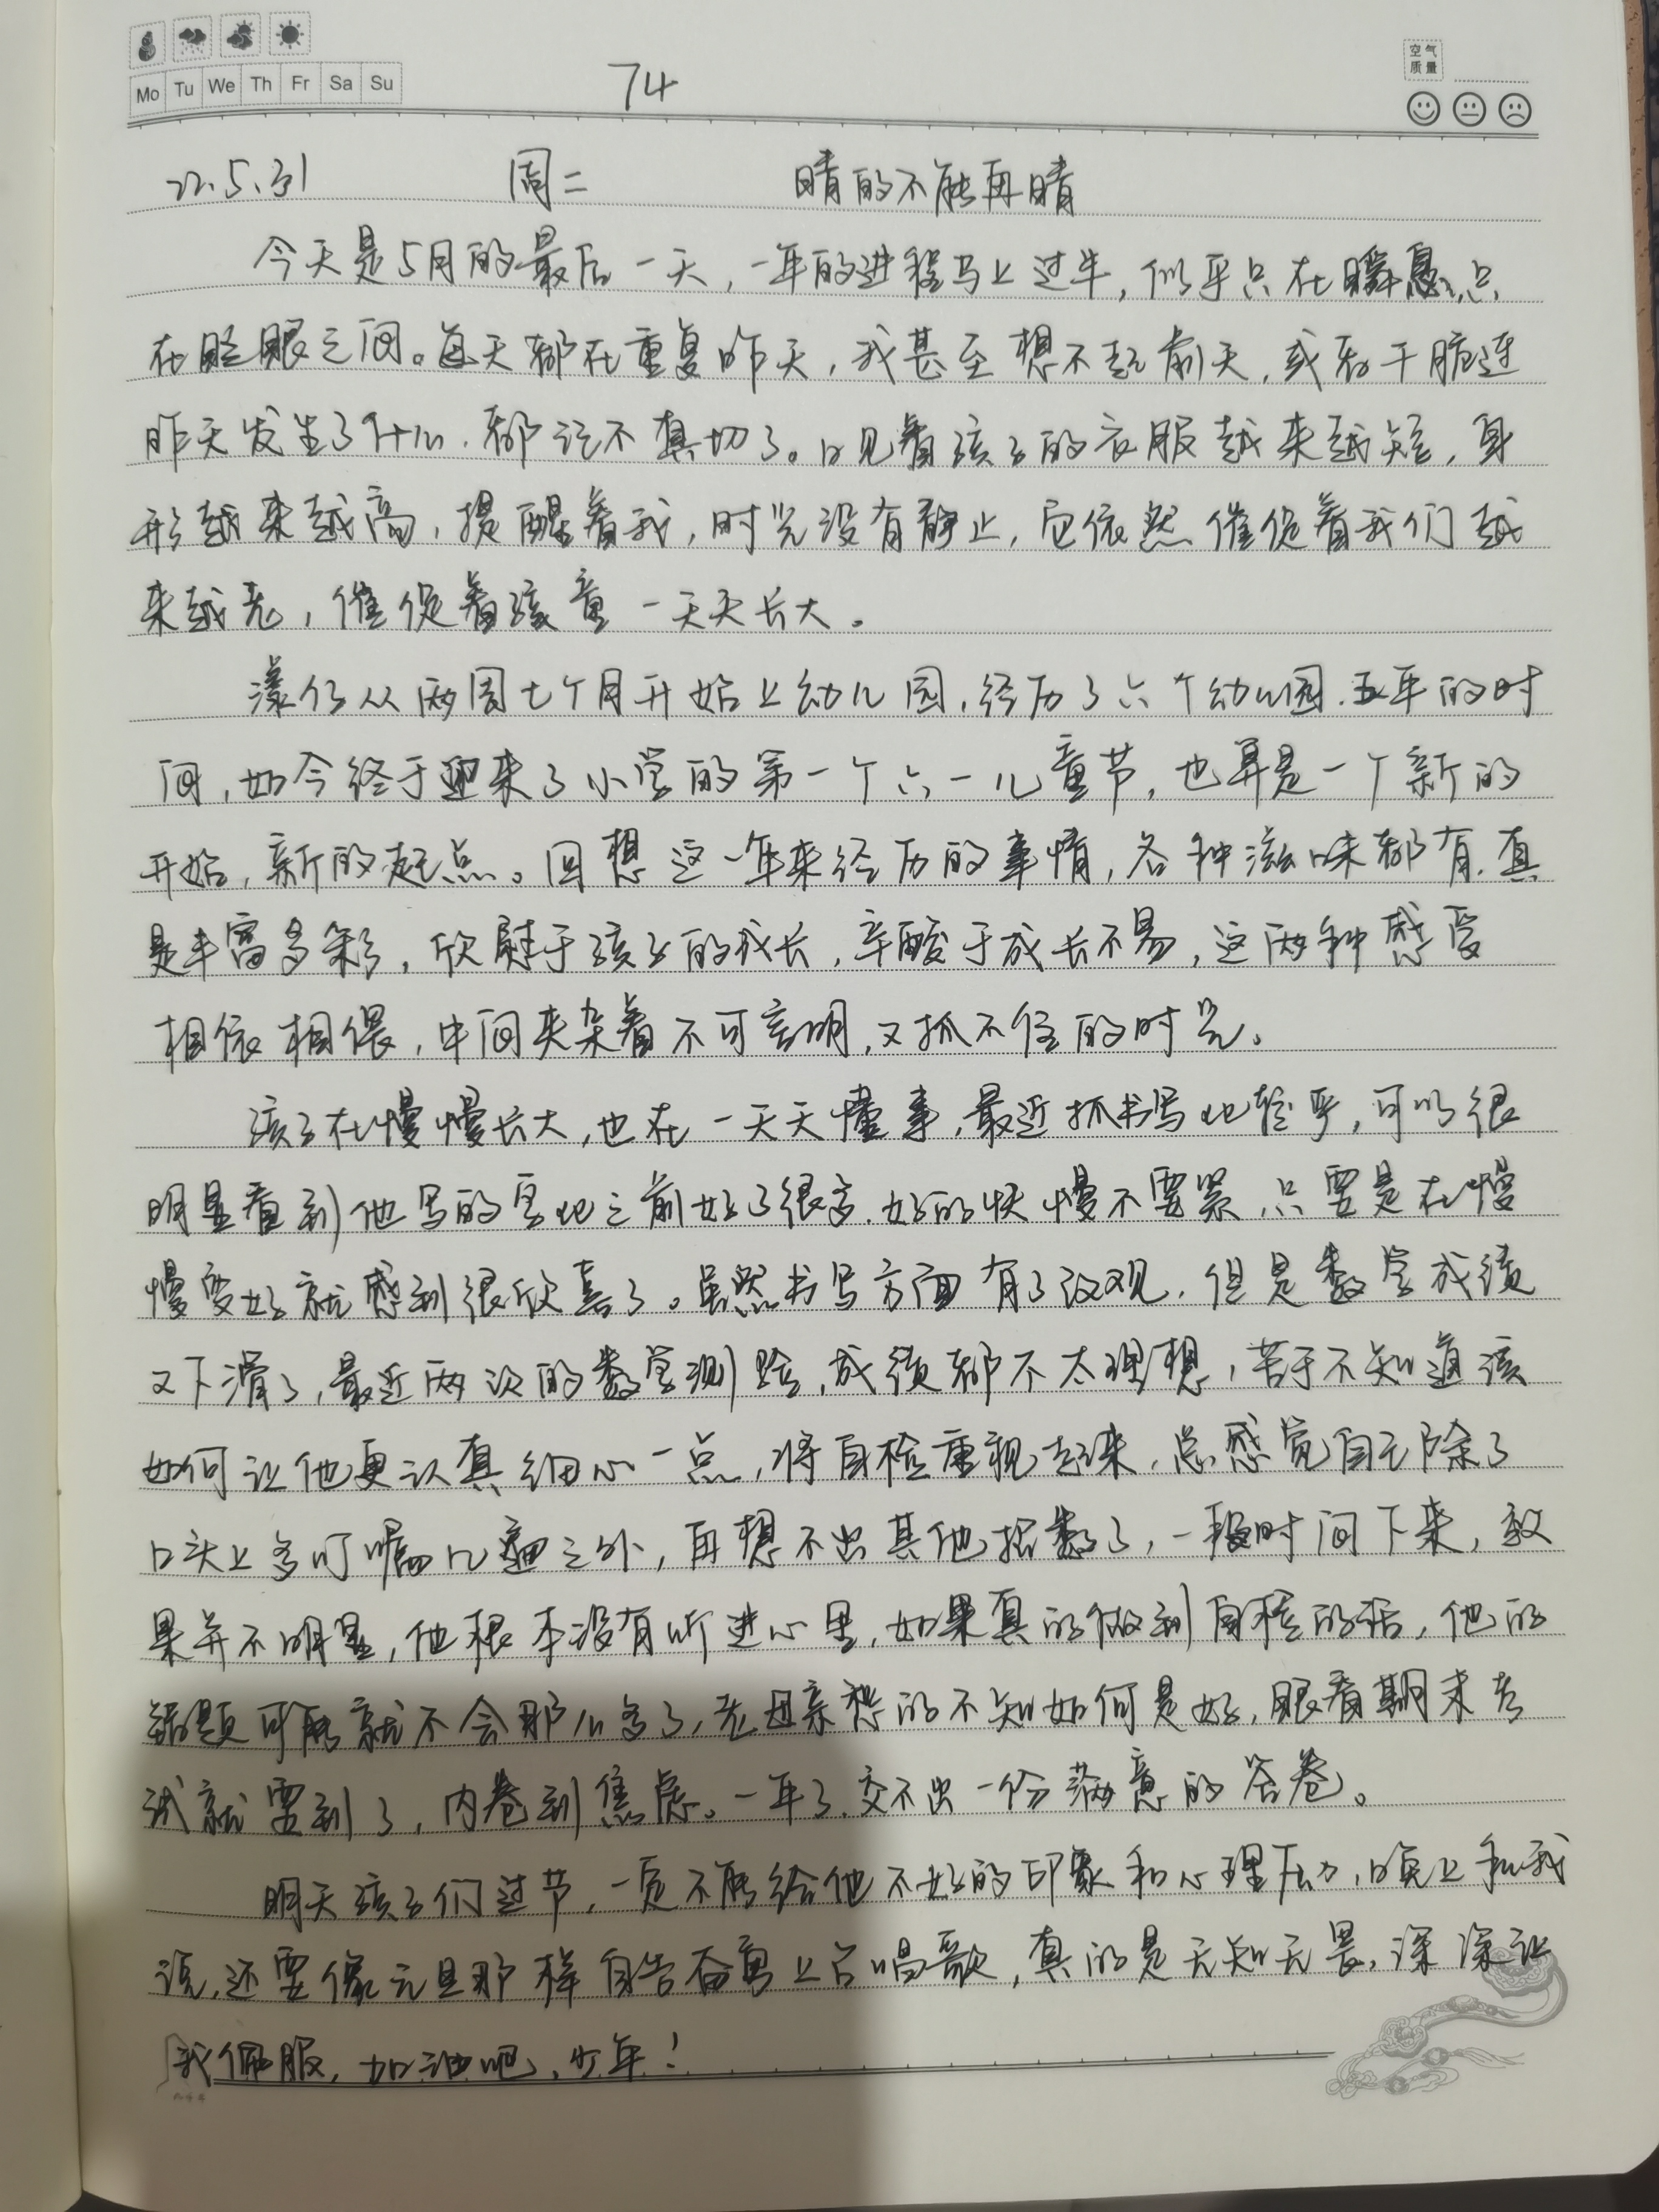 空气
质量
Mo Tu We Th Fr Sa Su
74
22.5.31 周二 晴的不能再晴
今天是5月的最后一天，一年的进程马上过半，似乎只在瞬息，只
在眨眼之间。每天都在重复昨天，我甚至想不起前天，或者干脆连
昨天发生了什么，都记不真切了。只见着孩子的衣服越来越短，身
形越来越高，提醒着我，时光没有静止，它依然催促着我们越
来越老，催促着孩童一天天长大。
漾仔从两周七个月开始上幼儿园，经历了六个幼儿园，五年的时
间，如今终于迎来了小学的第一个六一儿童节，也算是一个新的
开始，新的起点。回想这一年来经历的事情，各种滋味都有，真
是丰富多彩，欣慰于孩子的成长，辛酸于成长不易，这两种感受
相依相偎，中间夹杂着不可言明，又抓不住的时光。
孩子在慢慢长大，也在一天天懂事，最近抓书写比较严，可以很
明显看到他写的字比之前好了很多，好的快慢不要紧，只要是在慢
慢变好就感到很欣喜了。虽然书写方面有了改观，但是数学成绩
又下滑了，最近两次的数学测验，成绩都不太理想，苦于不知道该
如何让他更认真细心一点，将自检重视起来，总感觉自己除了
口头上多叮嘱几遍之外，再想不出其他招数了，一段时间下来，效
果并不明显，他根本没有听进心里，如果真的做到自检的话，他的
错题可能就不会那么多了，老母亲愁的不知如何是好，眼看期末考
试就要到了，内卷到焦虑。一年了，交不出一份满意的答卷。
明天孩子们过节，一定不能给他不好的印象和心理压力，晚上和我
说，还要像元旦那样自告奋勇上台唱歌，真的是无知无畏，深深让
我佩服，加油吧，少年！